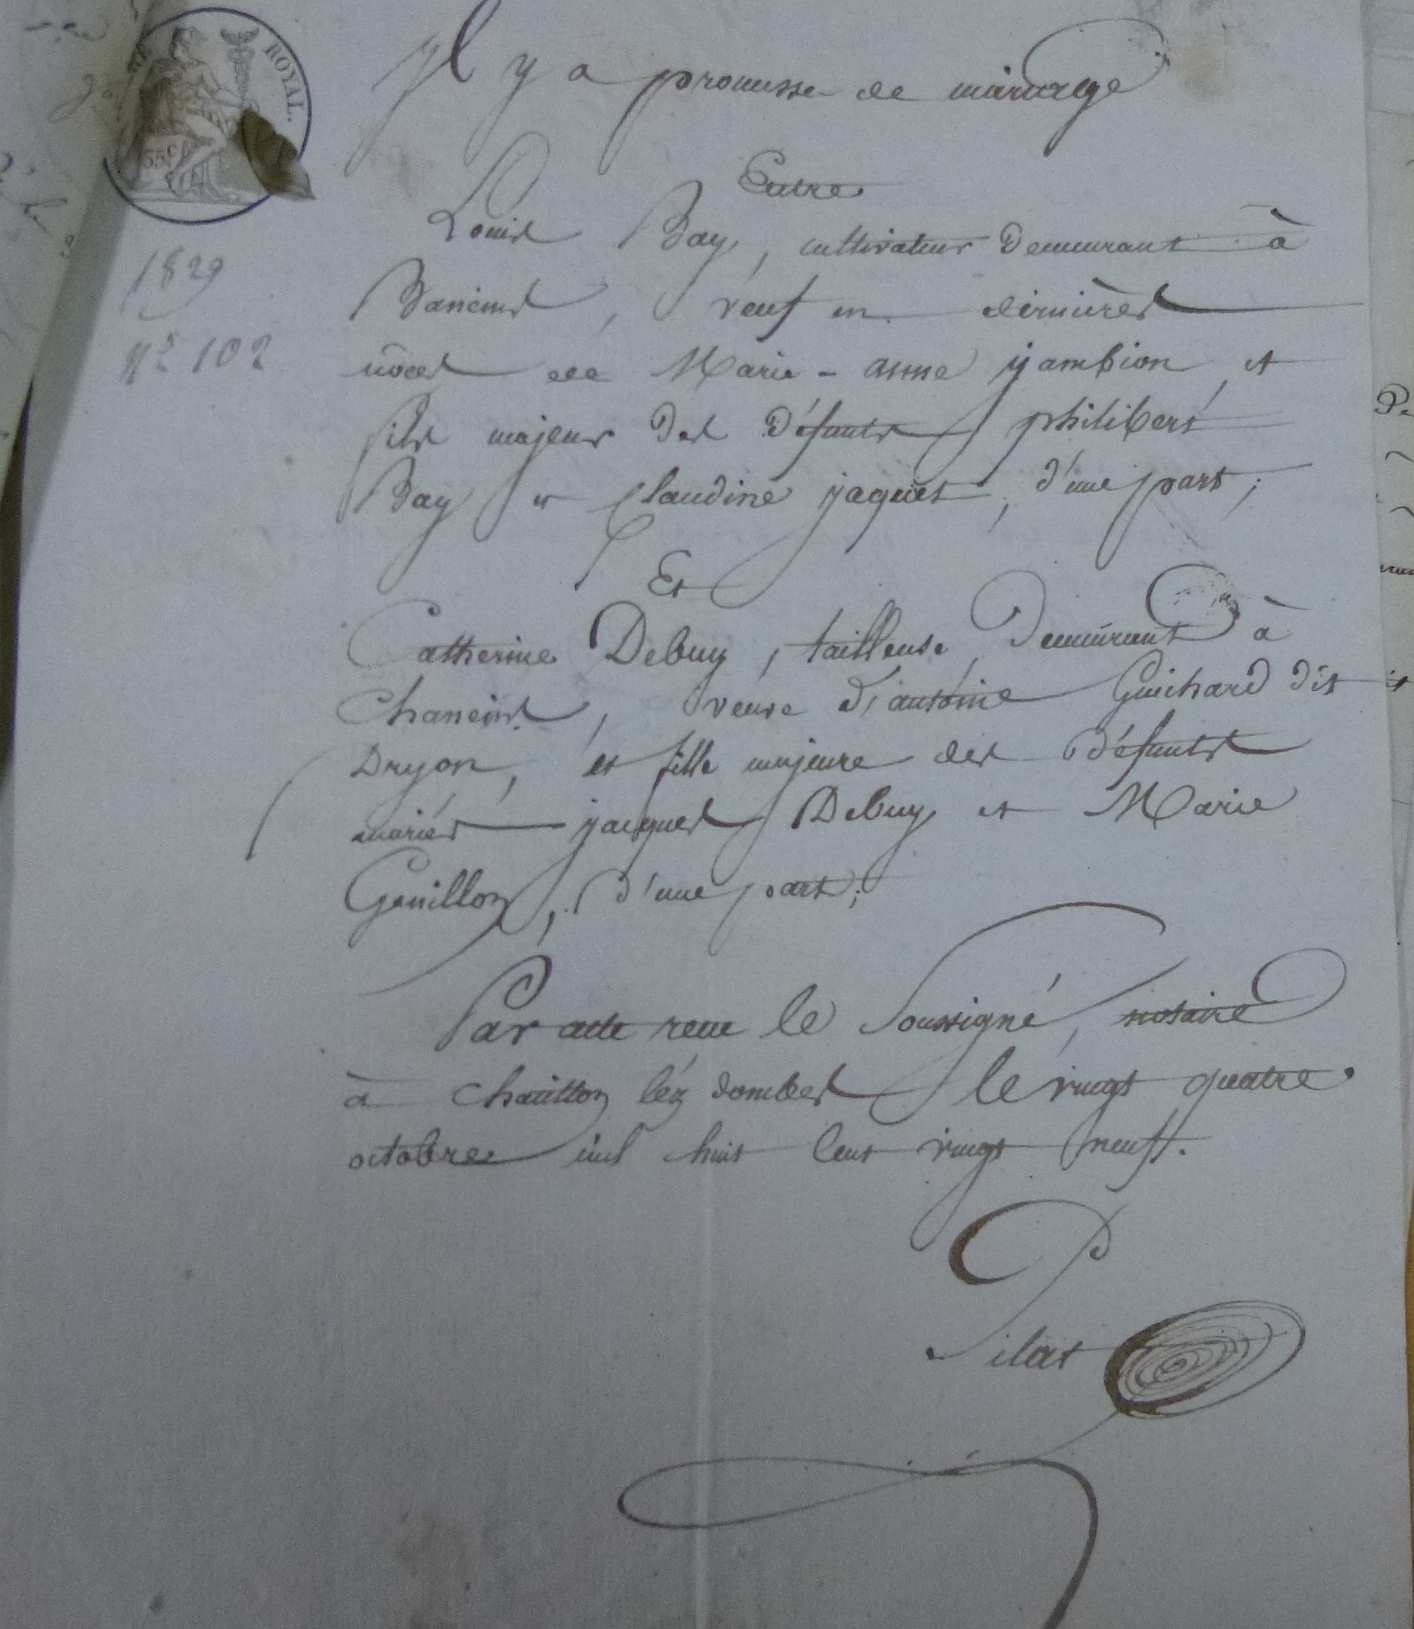 ROYAL.
35c
1829
N° 102
Il y a promesse de mariage
Entre
Louis Bay, cultivateur demeurant à
Baneins, veuf en dernières
nôces de Marie-anne yambion et
fils majeur des défunts philibert
Bay et Claudine yaquet, d'une part;
Et
Catherine Debuy, tailleuse, demeurant à
Chaneins, veuve d'antoine Guichard dit
Dryon, et fille majeure des défunts
mariés jacques Debuy et Marie
Genillon, d'une part;
Par acte reçu le soussigné, notaire
à chatillon léz dombes le vingt quatre
octobre mil huit cent vingt neuf.
Pilat